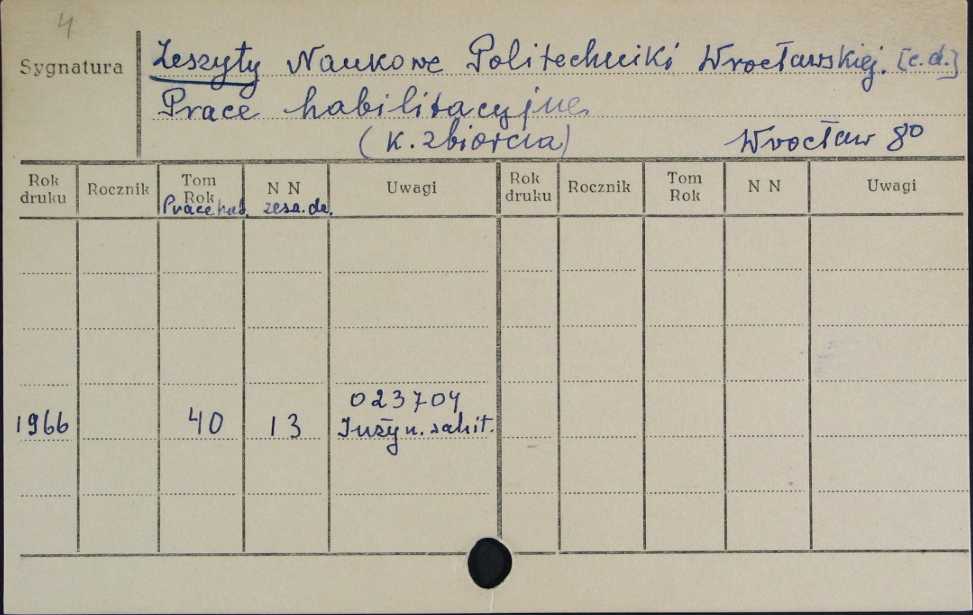 4
Sygnatura
Zeszyty Naukowe Politechniki Wrocławskiej. [c.d.]
Prace habilitacyjne
(K. zbiorcza)
Wrocław 8⁰
Rok druku Rocznik Tom Rok N N Uwagi Rok druku Rocznik Tom Rok N N Uwagi
Prace hab. zesz. de.
023704
1966 40 13 Inżyn. sanit.